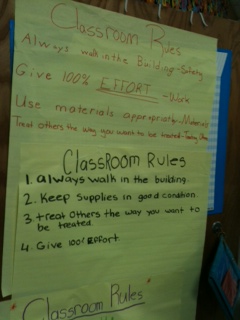 Classroom Rules
Always walk in the Building-Safety
Give 100% EFFORT -Work
Use materials appropriately-Materials
Treat others the way you want to be treated-
ClassRoom Rules
1. always walk in the building.
2. Keep Supplies in good condition.
3 treat Others the way you want to
be treated.
4. Give 100% Effort.
Classroom Rules